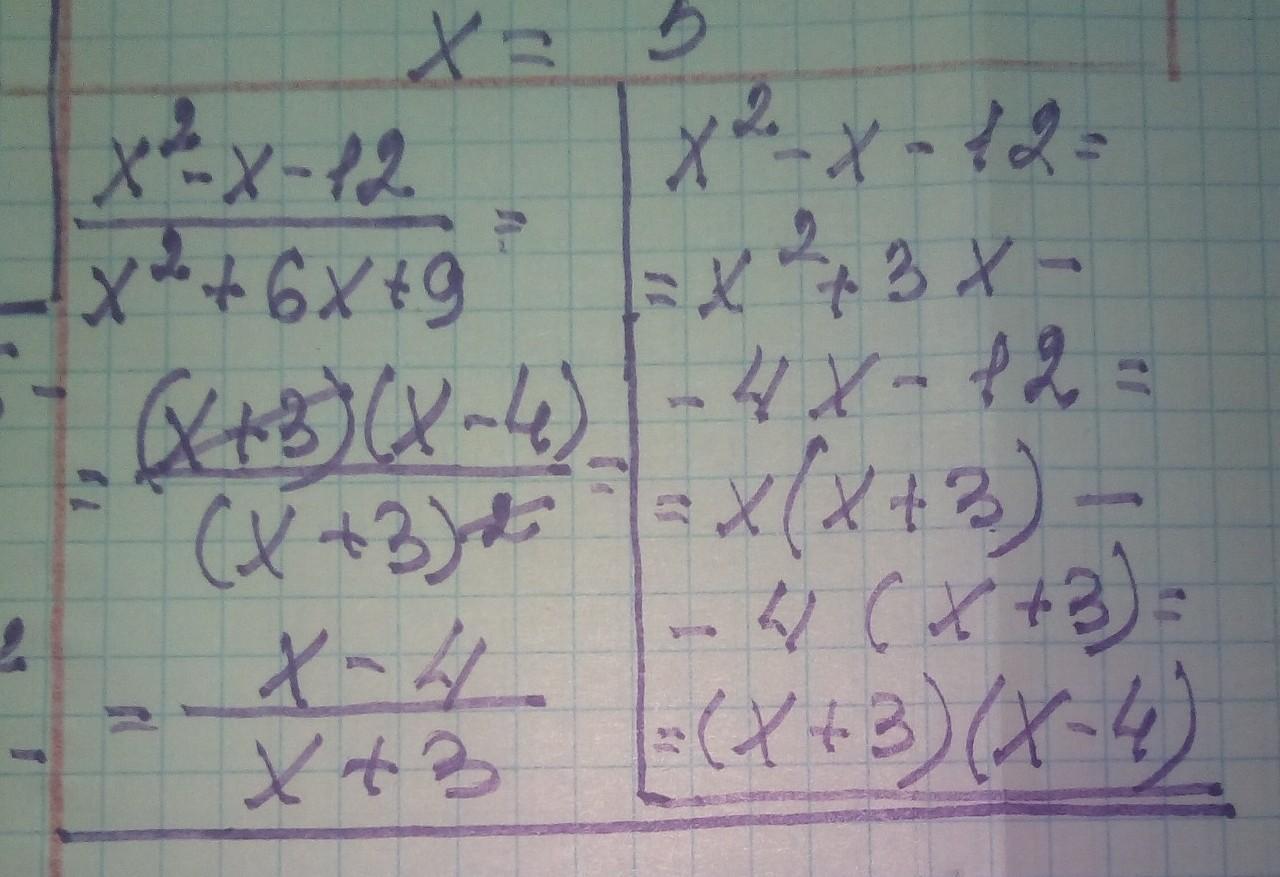 x = 5
x²-x-12
x²+6x+9 =
= (x+3)(x-4)
(x+3)2 =
= x-4
x+3
x²-x-12=
=x²+3x-
-4x-12=
=x(x+3)-
-4(x+3)=
=(x+3)(x-4)